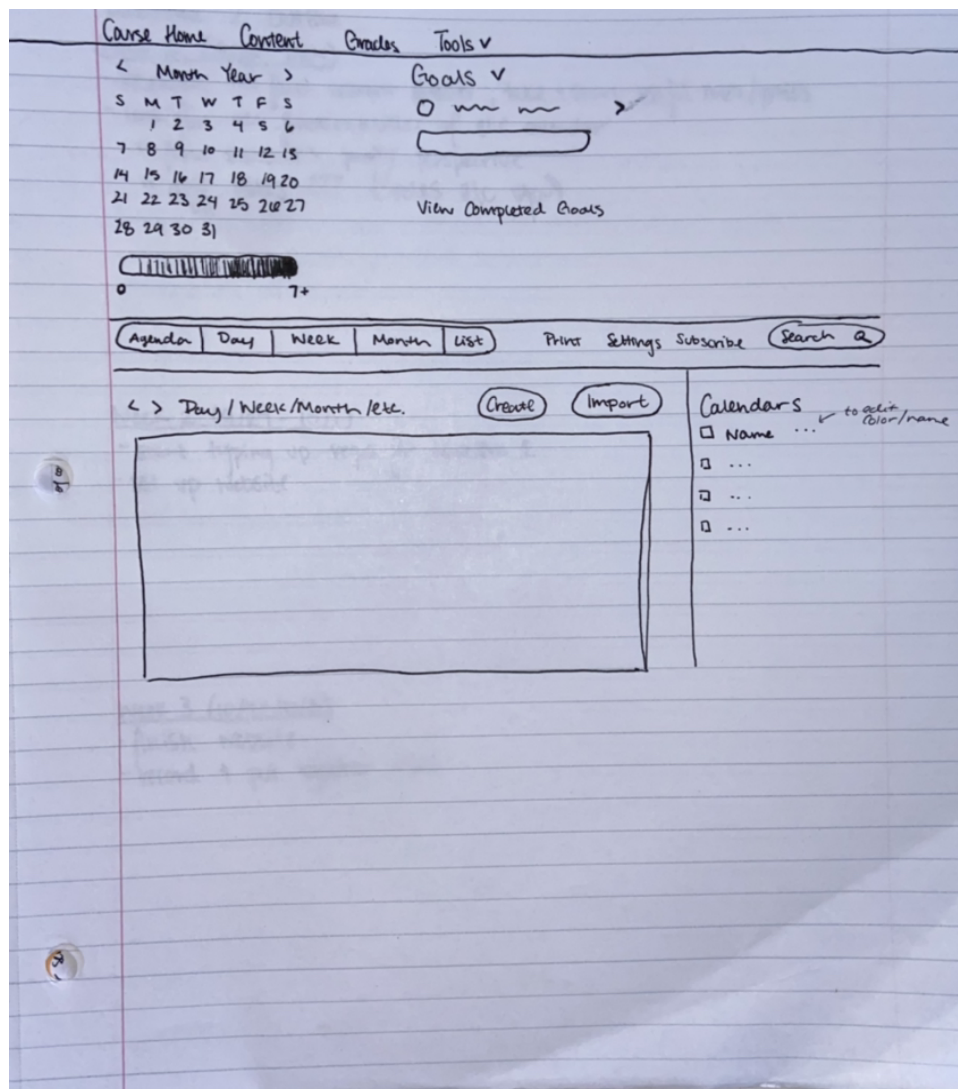 Course Home Content Grades Tools v
< Month Year >
S M T W T F S
1 2 3 4 5 6
7 8 9 10 11 12 13
14 15 16 17 18 19 20
21 22 23 24 25 26 27
28 29 30 31
0 7+
Goals v
>
View Completed Goals
Agenda Day Week Month List Print Settings Subscribe Search
< > Day/Week/Month/etc. Create Import
Calendars
Name ... to edit color/name
...
...
...